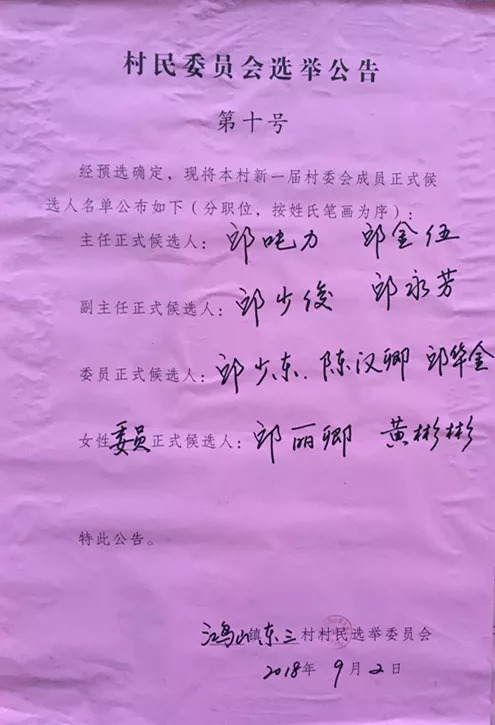 村民委员会选举公告
第十号
经预选确定,现将本村新一届村委会成员正式候
选人名单公布如下(分职位,按姓氏笔画为序):
主任正式候选人: 邱吨力 邱金伍
副主任正式候选人: 邱少俊 邱永芳
委员正式候选人: 邱少东、陈汉卿 邱华金
女性委员正式候选人: 邱丽卿 黄彬彬
特此公告。
鸿山镇东三村村民选举委员会
2018年 9月2日